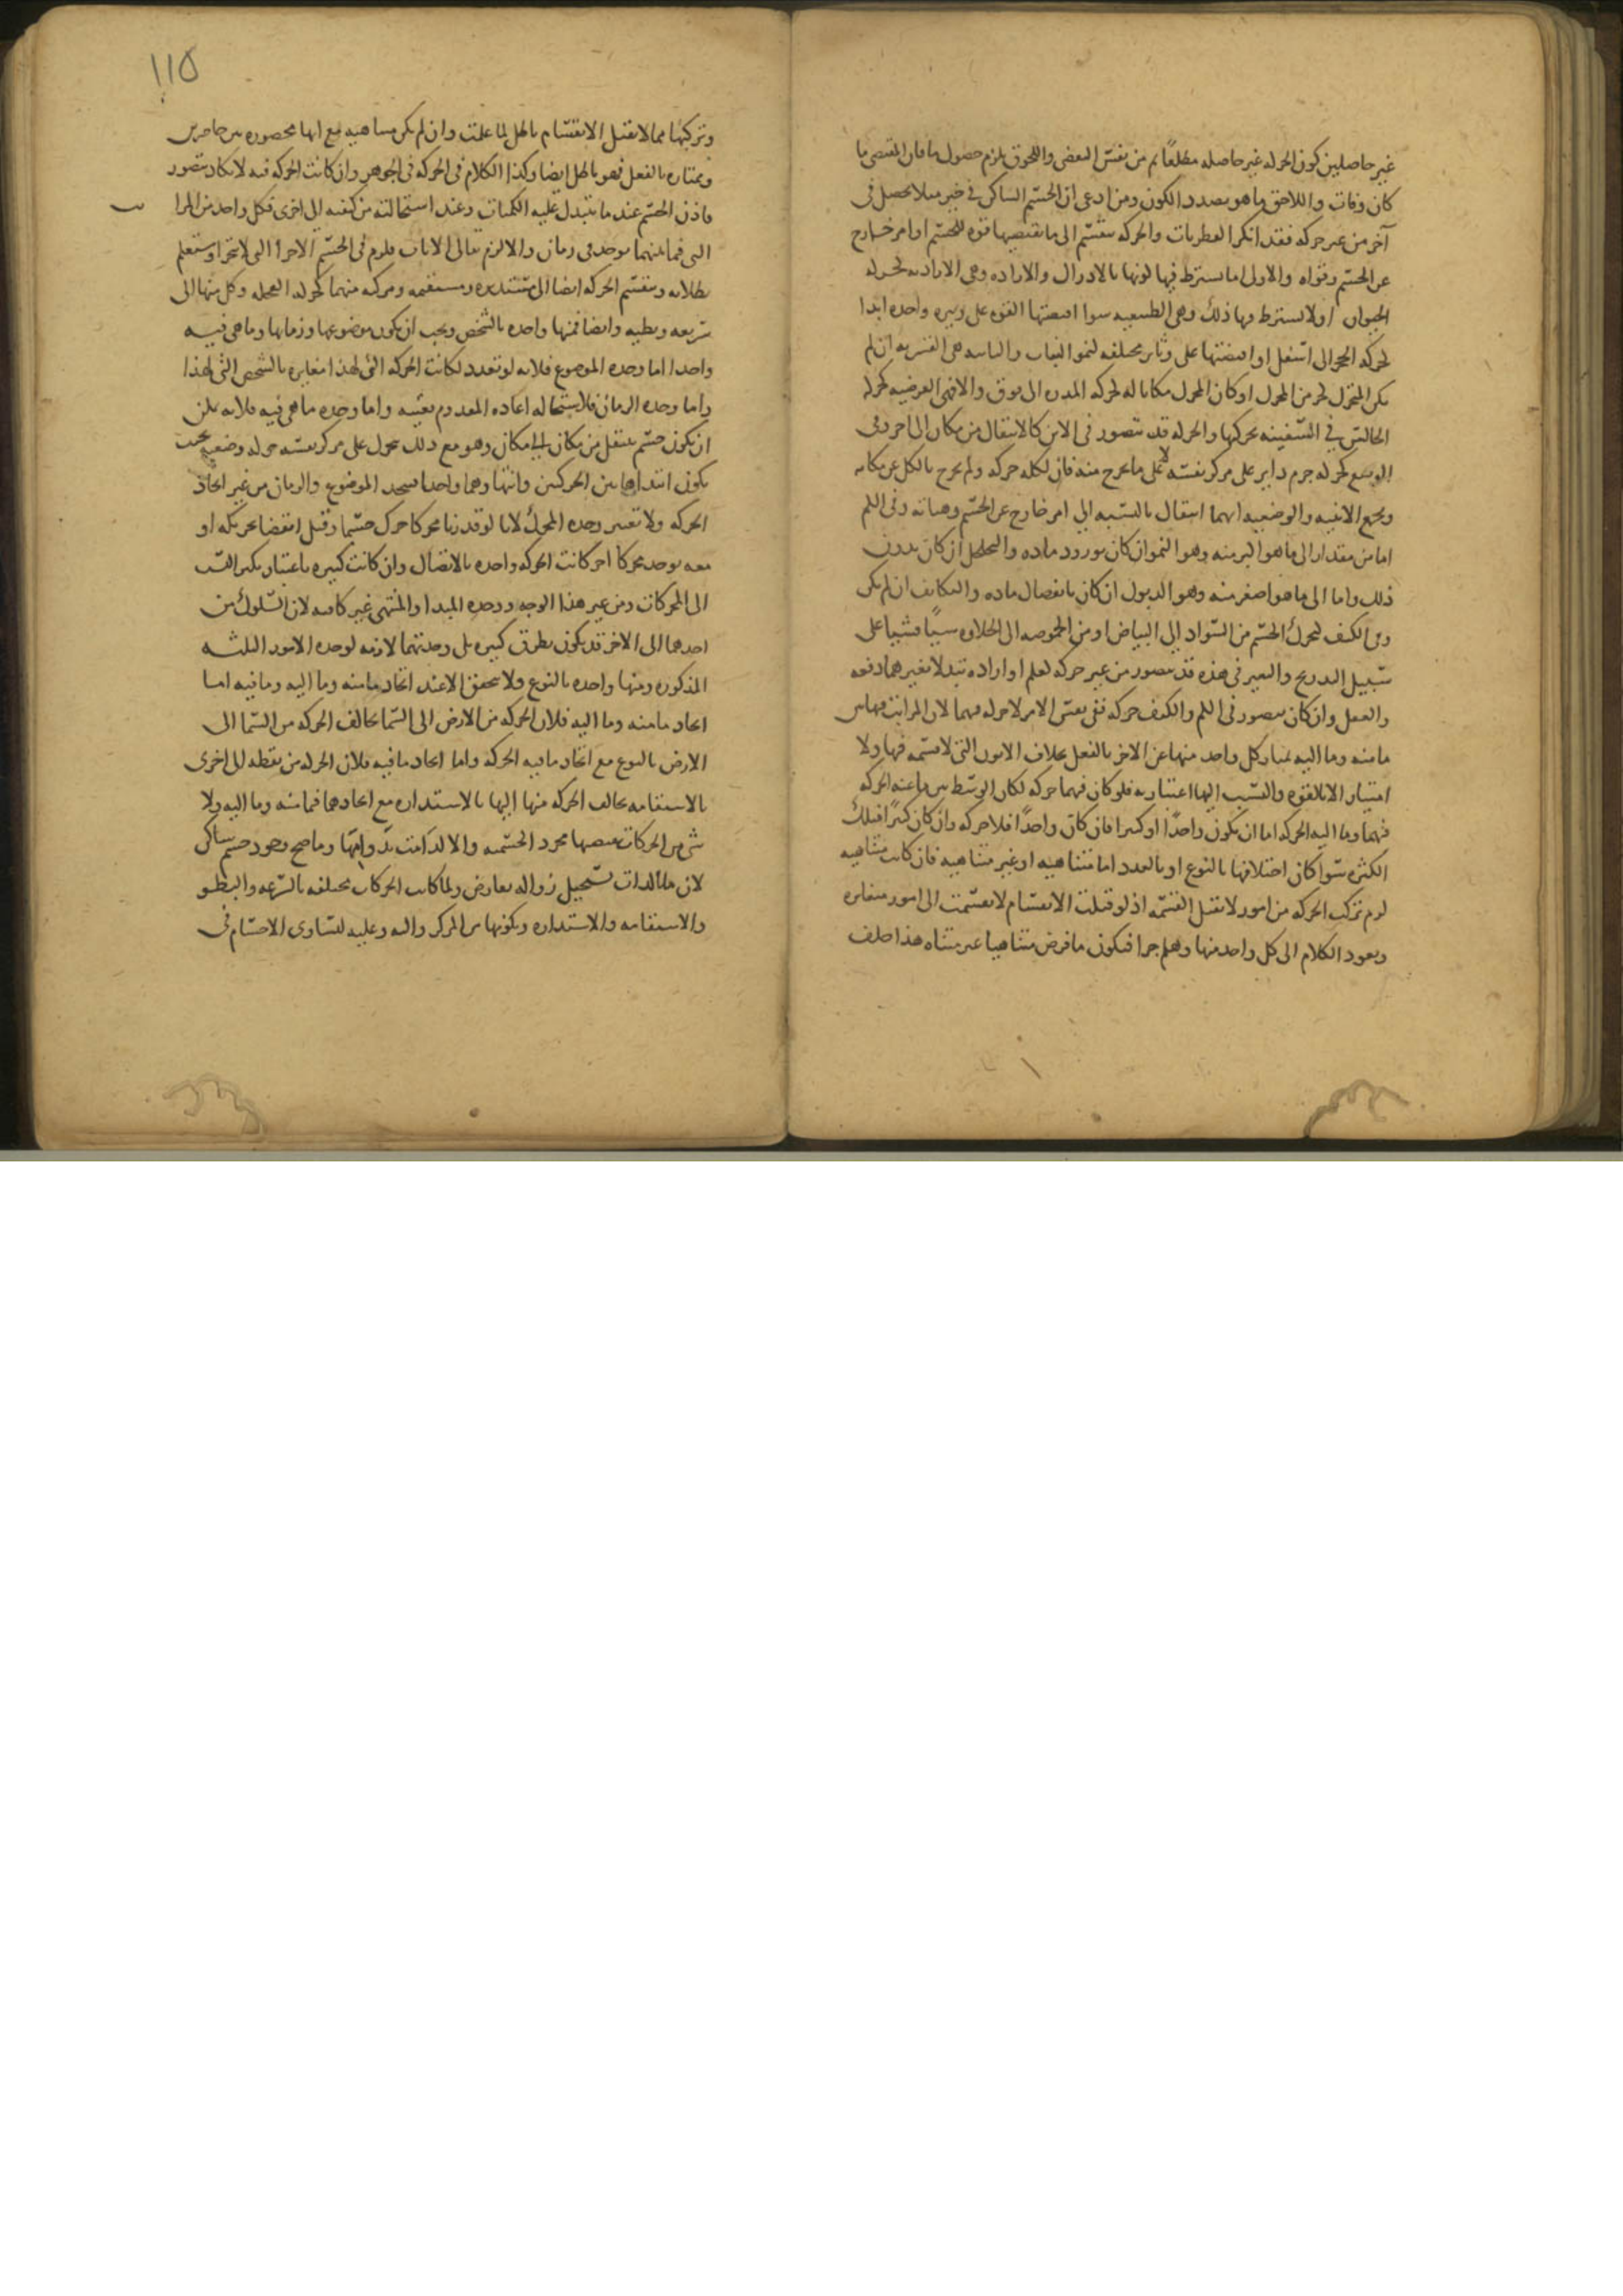 غير حاصلين كون الحركه غير حاصله مطلقا ثم من نفس البعض واللحوق يلزم حصول ما فان المقتضى ما
كان وفات واللاحق ما هو بصدد الكون ومن ادعى ان الجسم الساكن في حيز مثلا يحصل في
آخر من غير حركه فقد انكر الفطريات والحركه تنقسم الى ما تقتضيها قوه للجسم او امر خارج
عن الجسم وقواه والاولى اما يشترط فيها كونها بالادراك والاراده وهي الاراديه كحركه
الحيوان او لا يشترط فيها ذلك وهي الطبيعيه سوا اقتضتها القوه على وتيره واحده ابدا
كحركه الحجر الى اسفل او اقتضتها على وتاير مختلفه كنمو النبات والثانيه هي القسريه ان لم
يكن المتحرك كجز من المحرك او كان المحرك مكانا له كحركه المدره الى فوق والا فهي العرضيه كحركه
الجالس في السفينه بحركتها والحركه قد تتصور في الاين كالانتقال من مكان الى اخر وفي
الوضع كحركه جرم داير على مركز نفسه لا على ما يخرج منه فان لكله حركه ولم يخرج بالكل عن مكانه
ويجمع الاينيه والوضعيه انهما انتقال بالنسبه الى امر خارج عن الجسم وهياته وفي الكم
اما من مقدار الى ما هو اكبر منه وهو النمو ان كان بورود ماده والتخلخل ان كان بدون
ذلك واما الى ما هو اصغر منه وهو الذبول ان كان بانفصال ماده والتكاثف ان لم يكن
وفي الكيف كتحرك الجسم من السواد الى البياض او من الحموضه الى الحلاوه شيئا فشيئا على
سبيل التدريج والتغير في هذه قد يتصور من غير حركه كعلم او اراده تبدلا بغيرهما دفعه
والعقل وان كان يتصور في الكم والكيف حركه ففي نفس الامر لا حركه فيهما لان المراتب فيها من
ما منه وما اليه يمتاز كل واحد منها عن الاخر بالفعل بخلاف الاين التي لا قسمه فيها ولا
امتياز الا بالقوه والنسب اليها اعتباريه فلو كان فيهما حركه لكان الوسط بين ما عنه الحركه
فيهما وما اليه الحركه اما ان يكون واحدا او كثيرا فان كان واحدا فلا حركه وان كان كثيرا فتلك
الكثره سوا كان اختلافها بالنوع او بالعدد اما متناهيه او غير متناهيه فان كانت متناهيه
لزم تركب الحركه من امور لا تقبل القسمه اذ لو قبلت الانقسام لانقسمت الى امور متغايره
ويعود الكلام الى كل واحد منها وهلم جرا فيكون ما فرض متناهيا غير متناه هذا خلف
١١٥
وتركبها مما لا يقبل الانقسام باطل لما علمت وان لم يكن متناهيه مع انها محصوره بين حاصرين
وممتازه بالفعل فهو باطل ايضا وكذا الكلام في الحركه في الجوهر وان كانت الحركه فيه لا يكاد يتصور
فاذن الجسم عند ما يتبدل عليه الكميات وعند استحالته من كيفيه الى اخرى فكل واحد من المراتب
التي فيما بينهما يوجد في زمان والا لزم تتالى الانات فلزم في الجسم الاجزا التي لا تتجزا وستعلم
بطلانه وتنقسم الحركه ايضا الى مستديره ومستقيمه ومركبه منهما كحركه العجله وكل منها الى
سريعه وبطيه وايضا فمنها واحده بالشخص ويجب ان يكون موضوعها وزمانها وما هي فيه
واحدا اما وحده الموضوع فلانه لو تعدد لكانت الحركه التي لهذا مغايره بالشخص التي لهذا
واما وحده الزمان فلاستحاله اعاده المعدوم بعينه واما وحده ما هي فيه فلانه يمكن
ان يكون جسم ينتقل من مكان الى مكان وهو مع ذلك يتحرك على مركز نفسه حركه وضعيه بحيث
يكون ابتدا هاتين الحركتين وانتهاوهما واحدا فيتحد الموضوع والزمان من غير اتحاد
الحركه ولا تعتبر وحده المحرك لانا لو قدرنا محركا حرك جسما وقبل انقضا تحريكه او
معه يوجد محركا اخر كانت الحركه واحده بالاتصال وان كانت كثيره باعتبار تكثر النسب
الى المحركات ومن غير هذا الوجه ووحده المبدا والمنتهى غير كافيه لان السلوك من
احدهما الى الاخر قد يكون بطرق كثيره بل وحدتهما لازمه لوحده الامور الثلثه
المذكوره ومنها واحده بالنوع ولا يتحقق الا عند اتحاد ما منه وما اليه وما فيه اما
اتحاد ما منه وما اليه فلان الحركه من الارض الى السما تخالف الحركه من السما الى
الارض بالنوع مع اتحاد ما فيه الحركه واما اتحاد ما فيه فلان الحركه من نقطه الى اخرى
بالاستقامه تخالف الحركه منها اليها بالاستداره مع اتحادهما فيما منه وما اليه ولا
شي من الحركات يقتضيها مجرد الجسميه والا لدامت بدوامها وما صح وجود جسم ساكن
لان ما بالذات يستحيل زواله بعارض ولما كانت الحركات مختلفه بالسرعه والبطو
والاستقامه والاستداره وبكونها من المركز واليه وعليه لتساوي الاجسام في